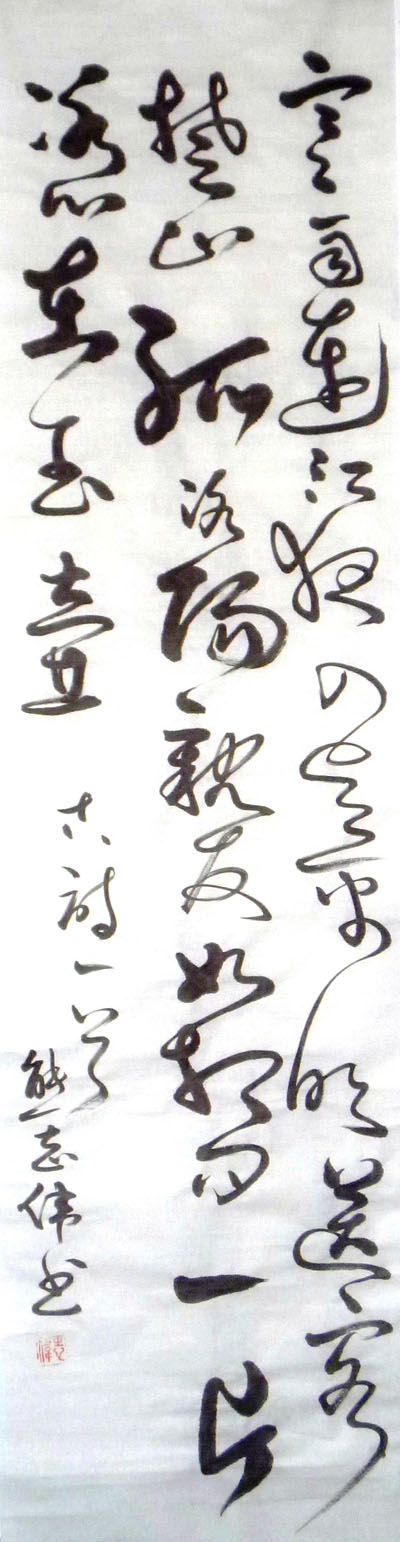 寒雨連江夜入吴平明送客
楚山孤洛陽親友如相问一片
冰心在玉壶
古詩一首
熊志偉书